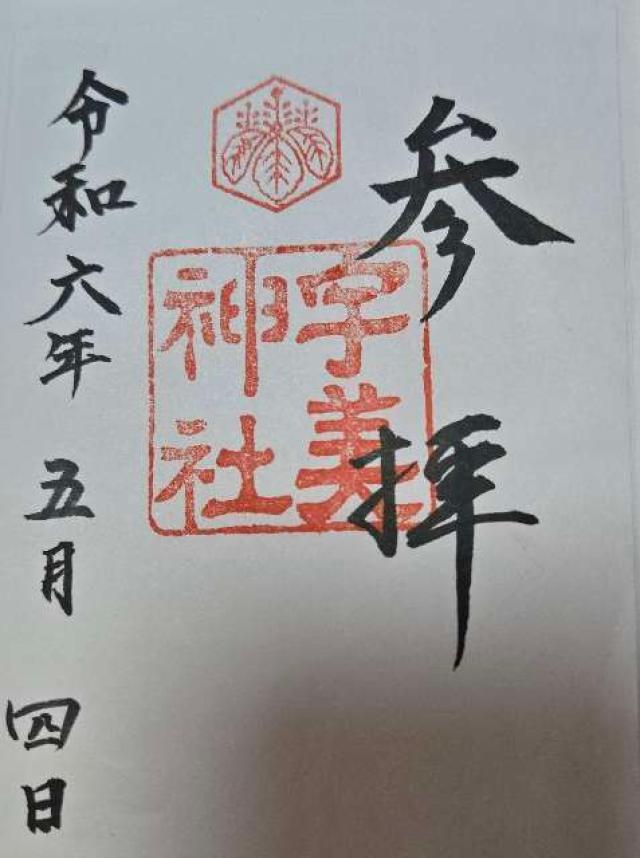 参拝
宇美
神社
令和六年 五月 四日